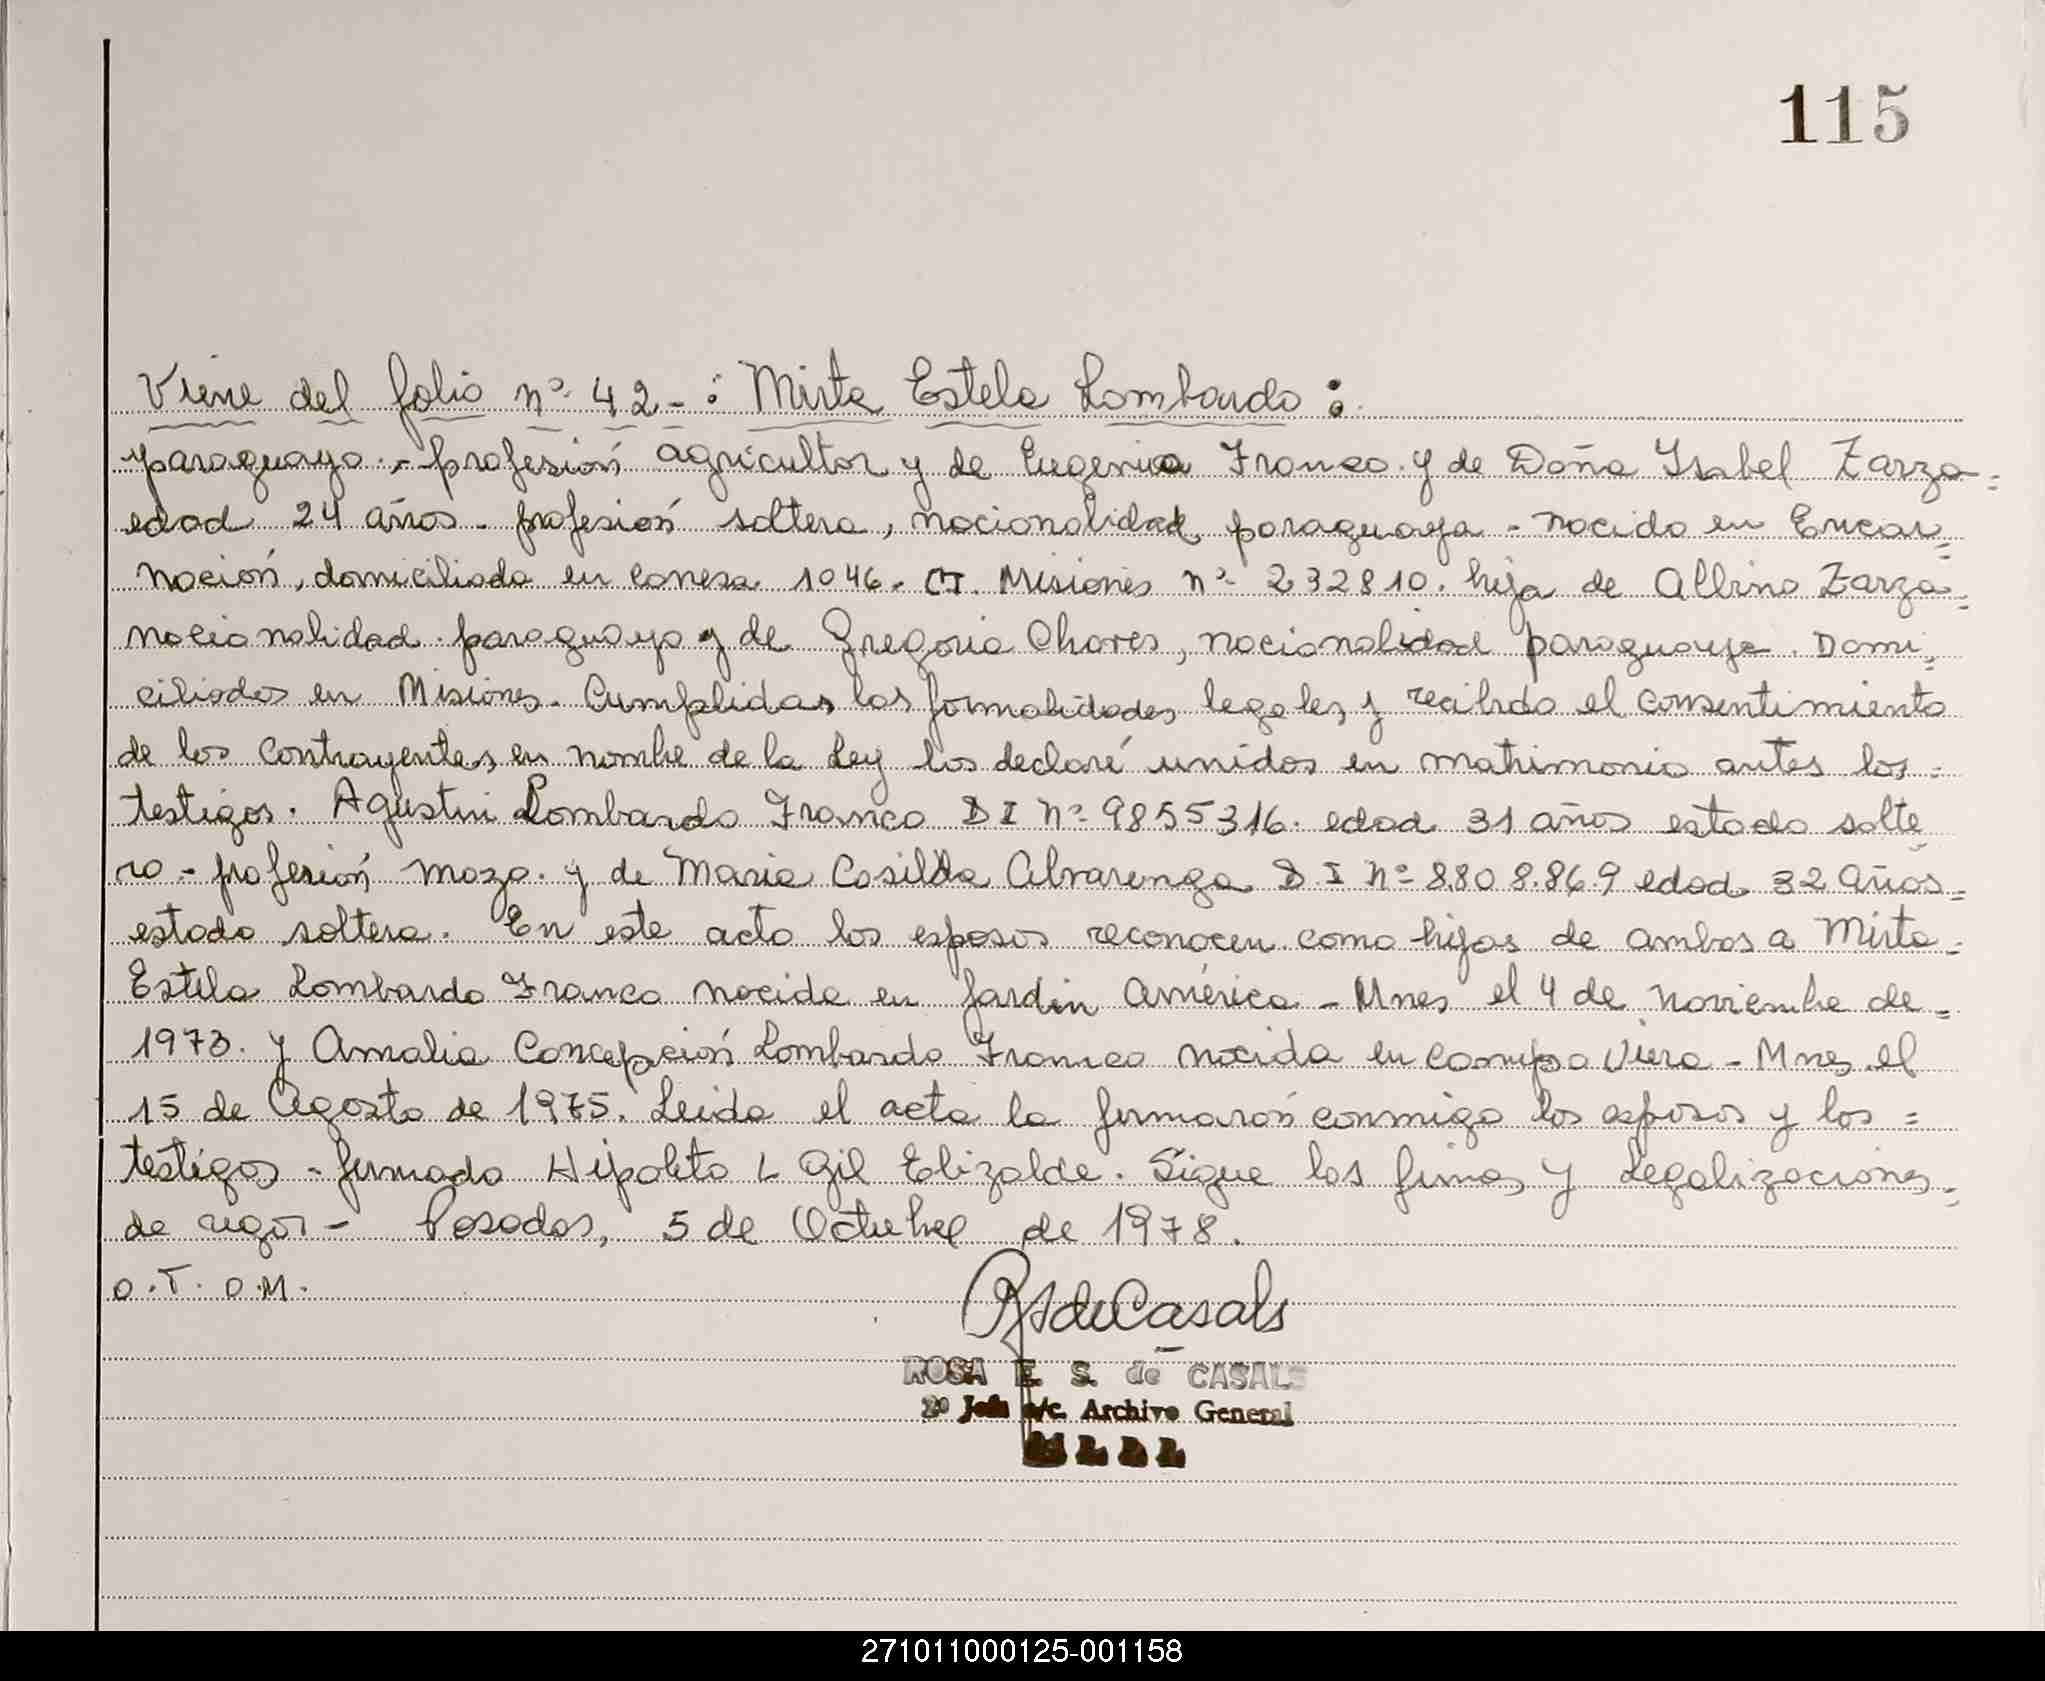 115
Viene del folio nº 42-: Mirta Estela Lombardo:
paraguayo.- profesión agricultor y de Eugenia Franco. y de Doña Ysabel Zarza=
edad 24 años - profesión soltera, nacionalidad paraguaya - nacida en Encar=
nación, domiciliada en Conesa 1046. CI. Misiones nº 232810. hija de Albino Zarza=
nacionalidad paraguaya y de Gregoria Chaves, nacionalidad paraguaya. Domi=
ciliados en Misiones. Cumplidas las formalidades legales y recibido el consentimiento
de los contrayentes, en nombre de la Ley los declaré unidos en matrimonio antes los=
testigos. Agustin Lombardo Franco D I Nº 9855316. edad 31 años estado solte
ro - profesión mozo. y de Maria Casilda Alvarenga D. I Nº 8.808.869 edad 32 años=
estado soltera. En este acto los esposos reconocen como hijas de ambos a Mirta=
Estela Lombardo Franco nacida en Jardin América - Mnes el 4 de noviembre de=
1973. y Amalia Concepción Lombardo Franco nacida en Campo Viera - Mnes. el
15 de Agosto de 1975. Leida el acta la firmarón conmigo los esposos y los=
testigos - firmado Hipolito L Gil Elizalde. Sigue las firmas y Legalizaciones=
de rigor - Posadas, 5 de Octubre de 1978.
O.T. O.M.
RSdeCasals
ROSA E. S. de CASALS
2º Jefa a/c. Archivo General
271011000125-001158